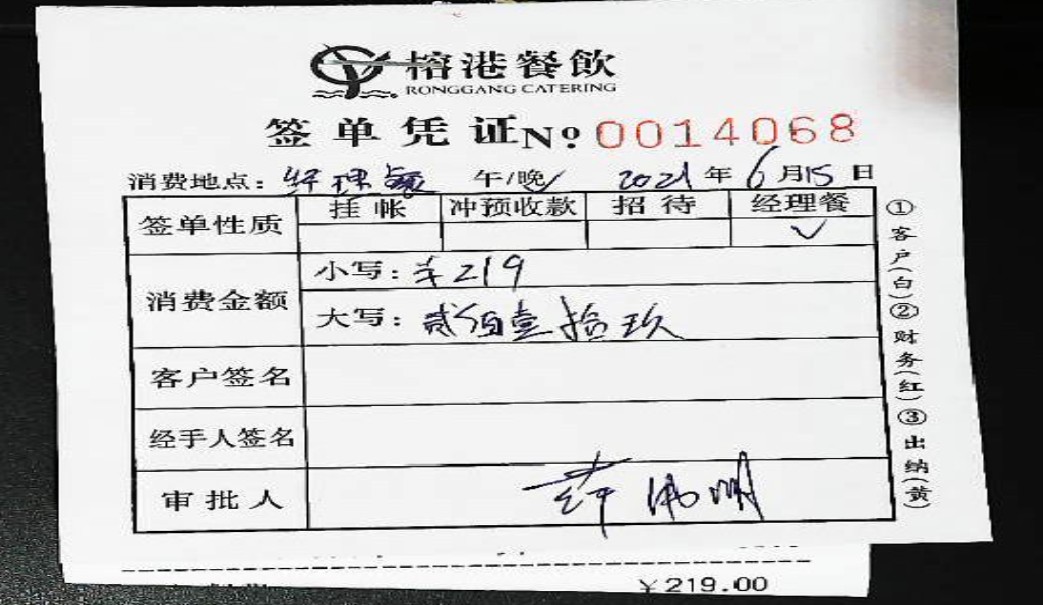 榕港餐飲
RONGGANG CATERING
签单凭证 Nº 0014068
消费地点：经理 午/晚✓ 2021年6月15日
签单性质 挂帐 冲预收款 招待 经理餐
✓
消费金额 小写：¥219
大写：贰佰壹拾玖
客户签名
经手人签名
审批人
①客户(白)②财务(红)③出纳(黄)
¥219.00